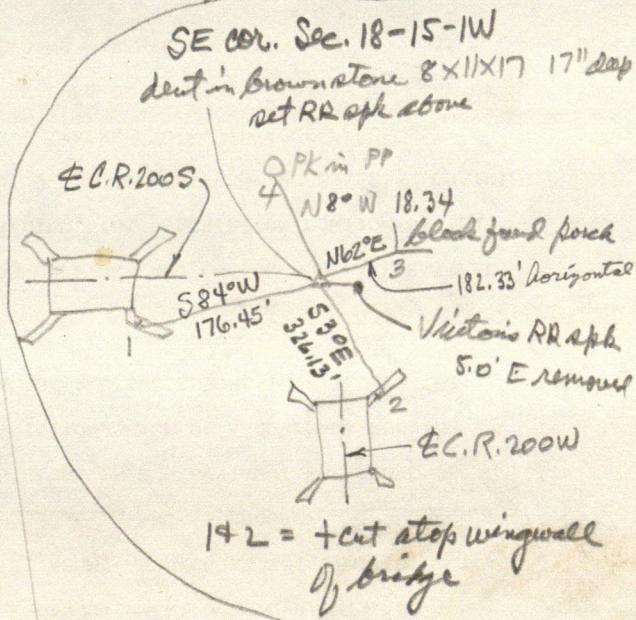 SE cor. Sec. 18-15-1W
dent in brownstone 8x11x17 17" deep
set RR spk above
℄ C.R. 200S
PK in PP
4
N8°W 18.34
block found porch
N62°E
3
182.33' horizontal
S84°W
176.45'
1
S3°E
326.13'
RR spk
5.0' E removed
2
℄ C.R. 200W
1&2 = + cut atop wingwall
of bridge